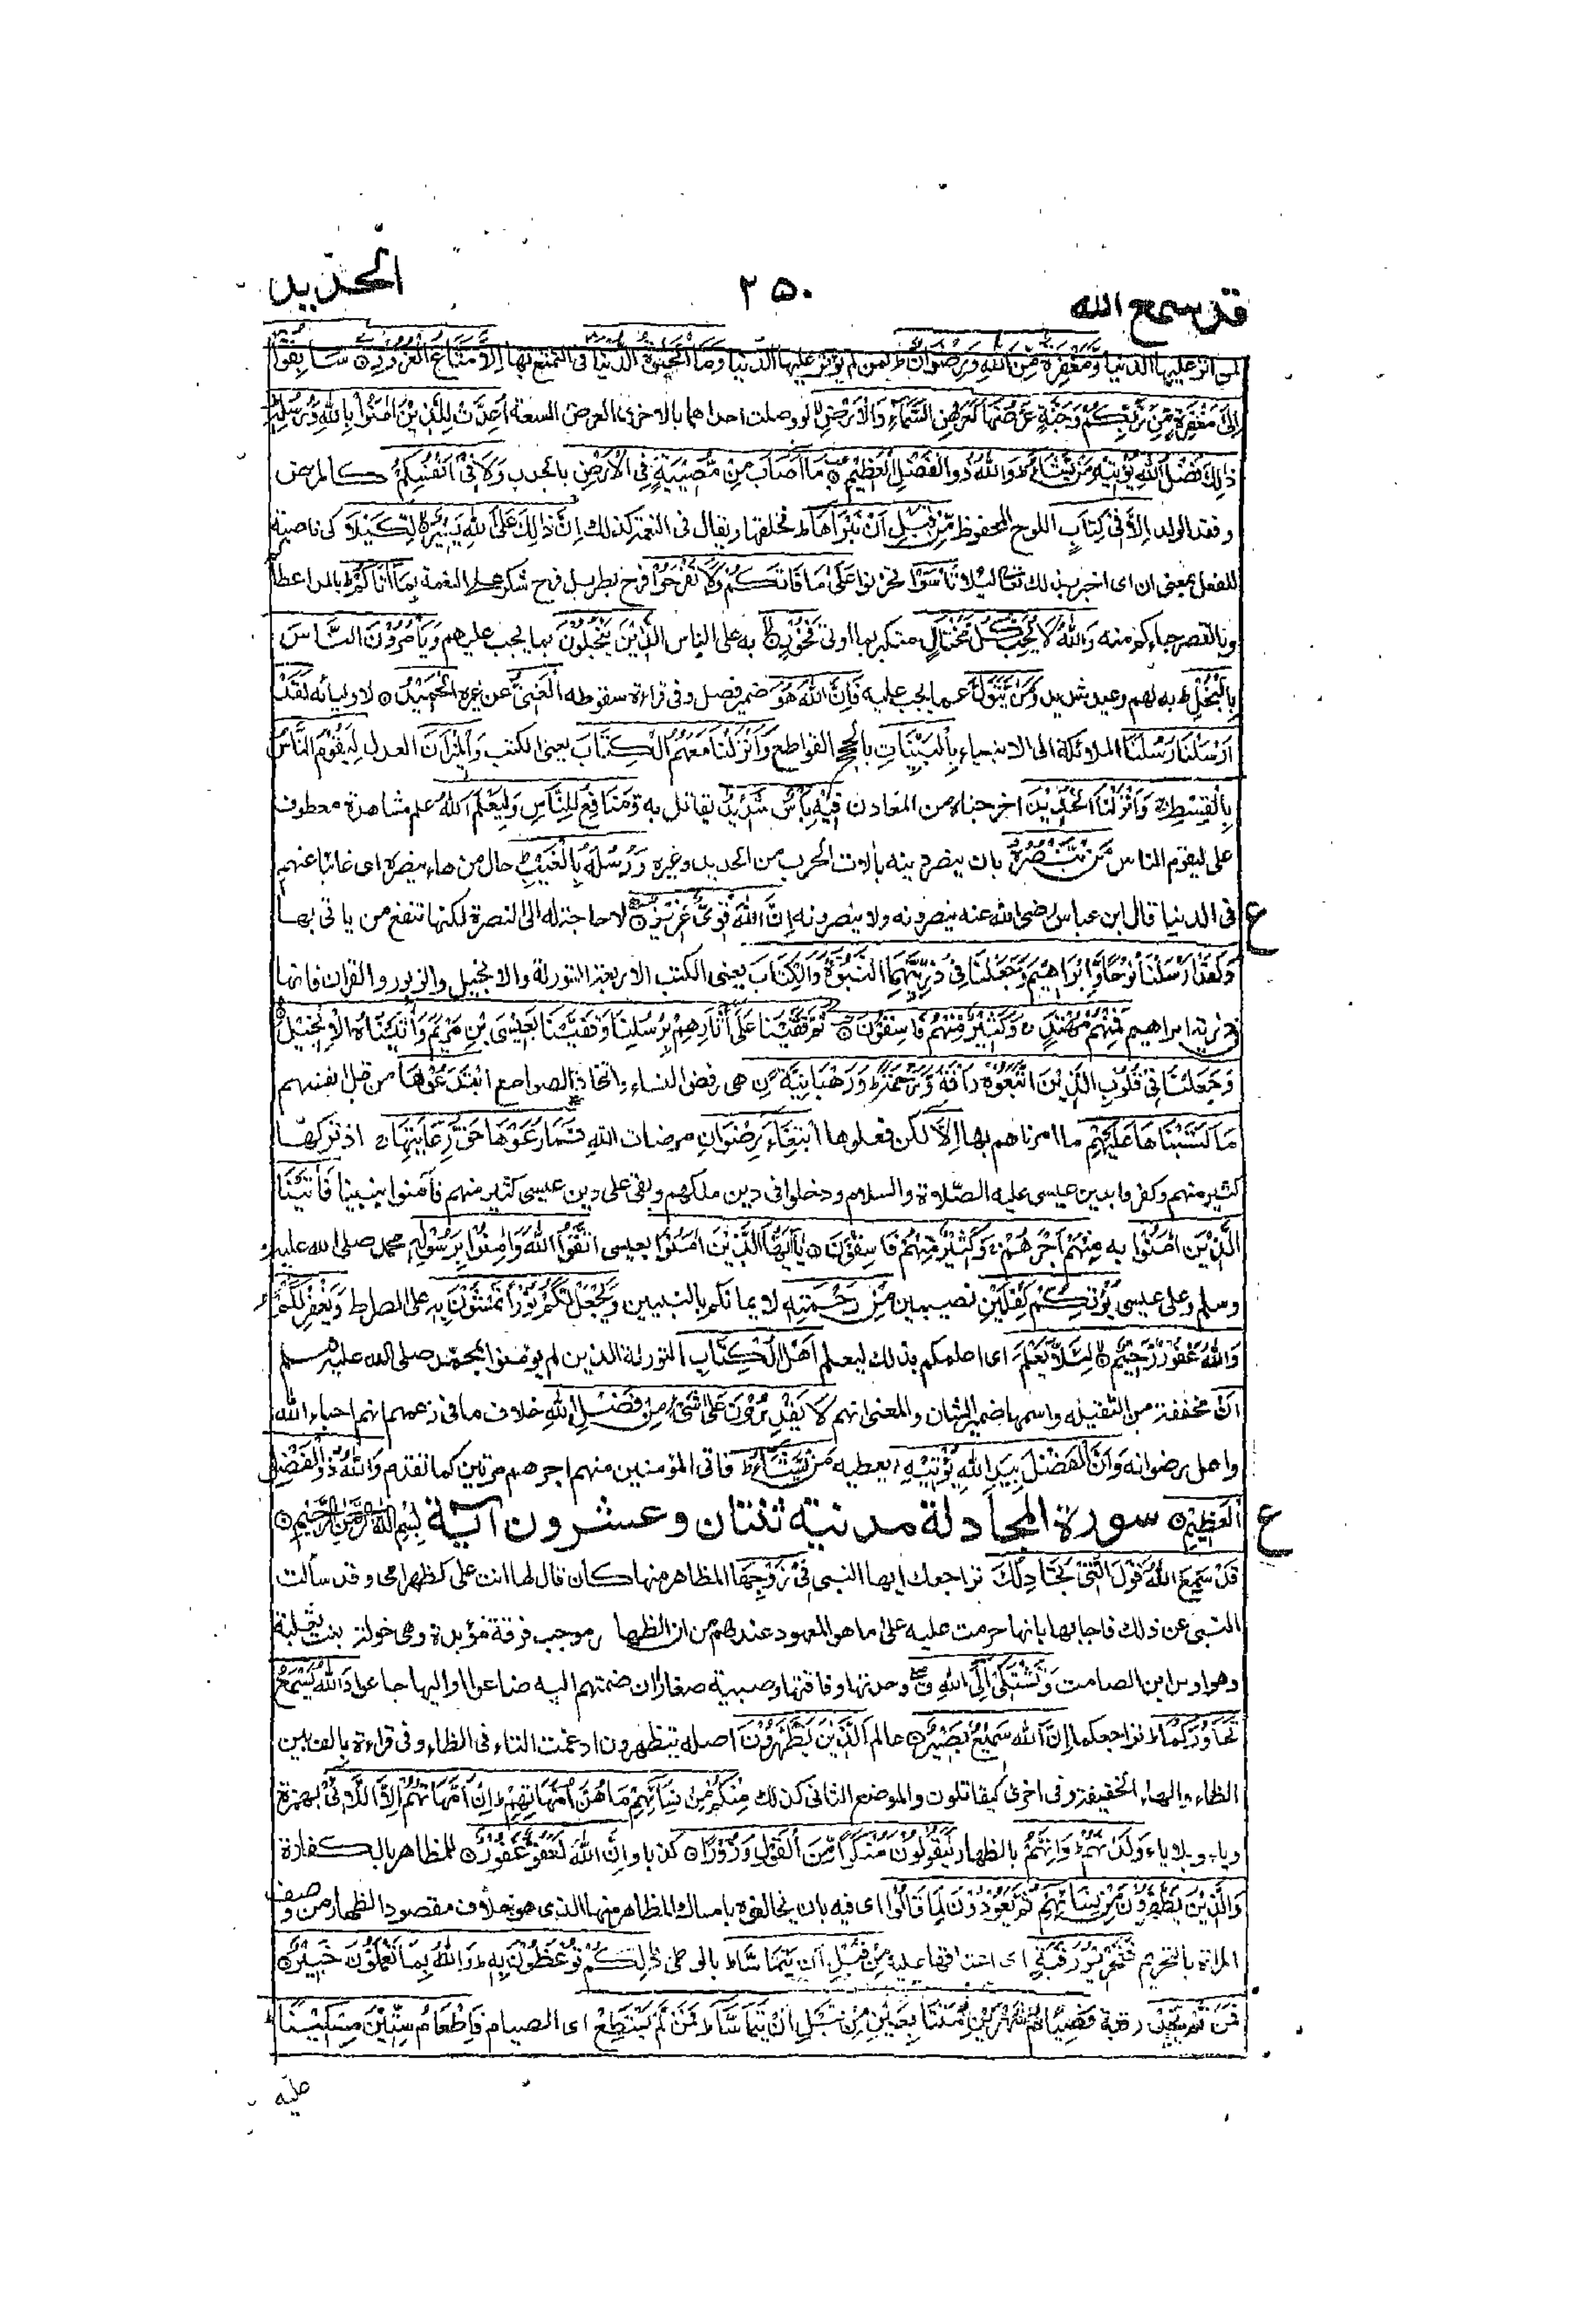 قد سمع الله
٢٥٠
الحديد
لمن اثر عليها الدنيا وَمَغْفِرَةٌ مِّنَ اللهِ وَرِضْوَانٌ ط لمن لم يؤثر عليها الدنيا وَمَا الْحَيٰوةُ الدُّنْيَا فى التمتع بها اِلَّا مَتَاعُ الْغُرُوْرِ ۝ سَابِقُوْا
اِلىٰ مَغْفِرَةٍ مِّنْ رَّبِّكُمْ وَجَنَّةٍ عَرْضُهَا كَعَرْضِ السَّمَآءِ وَالْاَرْضِ لا لو وصلت احدهما بالاخرى العرض السعة اُعِدَّتْ لِلَّذِيْنَ اٰمَنُوْا بِاللهِ وَرُسُلِهٖ ط
ذٰلِكَ فَضْلُ اللهِ يُؤْتِيْهِ مَنْ يَّشَآءُ ط وَاللهُ ذُو الْفَضْلِ الْعَظِيْمِ ۝ مَا اَصَابَ مِنْ مُّصِيْبَةٍ فِى الْاَرْضِ بالجدب وَلَا فِىْ اَنْفُسِكُمْ كالمرض
وفقد الولد اِلَّا فِىْ كِتَابٍ اللوح المحفوظ مِّنْ قَبْلِ اَنْ نَّبْرَاَهَا ط نخلقها ويقال فى النعمة كذلك اِنَّ ذٰلِكَ عَلَى اللهِ يَسِيْرٌ ۝ لِّكَيْلَا كى ناصبة
للفعل بمعنى ان اى اخبر بذلك تعالى لئلا تَاْسَوْا تحزنوا عَلىٰ مَا فَاتَكُمْ وَلَا تَفْرَحُوْا فرح بطر بل فرح شكر على النعمة بِمَا اٰتَاكُمْ ط بالمد اعطاكم
وبالقصر جاءكم منه وَاللهُ لَا يُحِبُّ كُلَّ مُخْتَالٍ متكبر بما اوتى فَخُوْرِ ۝ به على الناس الَّذِيْنَ يَبْخَلُوْنَ بما يجب عليهم وَيَاْمُرُوْنَ النَّاسَ
بِالْبُخْلِ ط به لهم وعيد شديد وَمَنْ يَّتَوَلَّ عما يجب عليه فَاِنَّ اللهَ هُوَ ضمير فصل وفى قراءة سقوطه الْغَنِىُّ عن غيره الْحَمِيْدُ ۝ لاوليائه لَقَدْ
اَرْسَلْنَا رُسُلَنَا الملائكة الى الانبياء بِالْبَيِّنَاتِ بالحجج القواطع وَاَنْزَلْنَا مَعَهُمُ الْكِتَابَ يعنى الكتب وَالْمِيْزَانَ العدل لِيَقُوْمَ النَّاسُ
بِالْقِسْطِ ج وَاَنْزَلْنَا الْحَدِيْدَ اخرجناه من المعادن فِيْهِ بَاْسٌ شَدِيْدٌ يقاتل به وَّمَنَافِعُ لِلنَّاسِ وَلِيَعْلَمَ اللهُ علم مشاهدة معطوف
على ليقوم الناس مَنْ يَّنْصُرُهٗ بان ينصر دينه بالات الحرب من الحديد وغيره وَرُسُلَهٗ بِالْغَيْبِ ط حال من هاء ينصره اى غائبا عنهم
فى الدنيا قال ابن عباس رضى الله عنه ينصرونه ولا يبصرونه اِنَّ اللهَ قَوِىٌّ عَزِيْزٌ ۝ لا حاجة له الى النصرة لكنها تنفع من ياتى بها
ع
وَلَقَدْ اَرْسَلْنَا نُوْحًا وَّاِبْرَاهِيْمَ وَجَعَلْنَا فِىْ ذُرِّيَّتِهِمَا النُّبُوَّةَ وَالْكِتَابَ يعنى الكتب الاربعة التورىة والانجيل والزبور والقران فانها
فى ذرية ابراهيم فَمِنْهُمْ مُّهْتَدٍ ج وَكَثِيْرٌ مِّنْهُمْ فَاسِقُوْنَ ۝ ثُمَّ قَفَّيْنَا عَلىٰ اٰثَارِهِمْ بِرُسُلِنَا وَقَفَّيْنَا بِعِيْسَى بْنِ مَرْيَمَ وَاٰتَيْنَاهُ الْاِنْجِيْلَ
وَجَعَلْنَا فِىْ قُلُوْبِ الَّذِيْنَ اتَّبَعُوْهُ رَاْفَةً وَّرَحْمَةً ط وَرَهْبَانِيَّةَ نِ هى رفض النساء واتخاذ الصوامع ابْتَدَعُوْهَا من قبل انفسهم
مَا كَتَبْنَاهَا عَلَيْهِمْ ما امرناهم بها اِلَّا لكن فعلوها ابْتِغَآءَ رِضْوَانِ مرضات اللهِ فَمَا رَعَوْهَا حَقَّ رِعَايَتِهَا ج اذ تركها
كثير منهم وكفروا بدين عيسى عليه الصلاوة والسلام ودخلوا فى دين ملكهم وبقى على دين عيسى كثير منهم فآمنوا بنبينا فَاٰتَيْنَا
الَّذِيْنَ اٰمَنُوْا به مِنْهُمْ اَجْرَهُمْ ج وَكَثِيْرٌ مِّنْهُمْ فَاسِقُوْنَ ۝ يٰاَيُّهَا الَّذِيْنَ اٰمَنُوْا بعيسى اتَّقُوا اللهَ وَاٰمِنُوْا بِرَسُوْلِهٖ محمد صلى الله عليه
وسلم وعلى عيسى يُؤْتِكُمْ كِفْلَيْنِ نصيبين مِنْ رَّحْمَتِهٖ لايمانكم بالنبيين وَيَجْعَلْ لَّكُمْ نُوْرًا تَمْشُوْنَ بِهٖ على الصراط وَيَغْفِرْ لَكُمْ ط
وَاللهُ غَفُوْرٌ رَّحِيْمٌ ۝ لِّئَلَّا يَعْلَمَ اى اعلمكم بذلك ليعلم اَهْلُ الْكِتَابِ التورىة الذين لم يؤمنوا بمحمد صلى الله عليه وسلم
اَنْ مخففة من الثقيلة واسمها ضمير الشان والمعنى انهم لَا يَقْدِرُوْنَ عَلىٰ شَىْءٍ مِّنْ فَضْلِ اللهِ خلاف ما فى زعمهم انهم احباء الله
واهل رضوانه وَاَنَّ الْفَضْلَ بِيَدِ اللهِ يُؤْتِيْهِ يعطيه مَنْ يَّشَآءُ ط فاتى المؤمنين منهم اجرهم مرتين كما تقدم وَاللهُ ذُو الْفَضْلِ
الْعَظِيْمِ ۝ سورة المجادلة مدنية ثنتان وعشرون آية بِسْمِ اللهِ الرَّحْمٰنِ الرَّحِيْمِ ۝
ع
قَدْ سَمِعَ اللهُ قَوْلَ الَّتِىْ تُجَادِلُكَ تراجعك ايها النبى فِىْ زَوْجِهَا المظاهر منها كان قال لها انت على كظهر امى وقد سألت
النبى عن ذلك فاجابها بانها حرمت عليه على ما هو المعهود عندهم من ان الظهار موجب فرقة مؤبدة وهى خولة بنت ثعلبة
وهو اوس ابن الصامت وَتَشْتَكِىْ اِلَى اللهِ وحدتها وفاقتها وصبية صغارا ان ضمتهم اليه ضاعوا او اليها جاعوا وَاللهُ يَسْمَعُ
تَحَاوُرَكُمَا ط تراجعكما اِنَّ اللهَ سَمِيْعٌ بَصِيْرٌ ۝ عالم اَلَّذِيْنَ يَظَّهَّرُوْنَ اصله يتظهرون ادغمت التاء فى الظاء وفى قراءة بالف بين
الظاء والهاء الخفيفة وفى اخرى كيقاتلون والموضع الثانى كذلك مِنْكُمْ مِّنْ نِّسَآئِهِمْ مَا هُنَّ اُمَّهَاتِهِمْ ط اِنْ اُمَّهَاتُهُمْ اِلَّا اللَّائِىْ بهمزة
وياء وبلا ياء وَلَدْنَهُمْ ط وَاِنَّهُمْ بالظهار لَيَقُوْلُوْنَ مُنْكَرًا مِّنَ الْقَوْلِ وَزُوْرًا ط كذبا وَاِنَّ اللهَ لَعَفُوٌّ غَفُوْرٌ ۝ للمظاهر بالكفارة
وَالَّذِيْنَ يَظَّهَّرُوْنَ مِنْ نِّسَآئِهِمْ ثُمَّ يَعُوْدُوْنَ لِمَا قَالُوْا اى فيه بان يخالفوه بامساك المظاهر منها الذى هو خلاف مقصود الظهار من وصف
المراة بالتحريم فَتَحْرِيْرُ رَقَبَةٍ اى اعتاقها عليه مِّنْ قَبْلِ اَنْ يَّتَمَآسَّا ط بالوطى ذٰلِكُمْ تُوْعَظُوْنَ بِهٖ ط وَاللهُ بِمَا تَعْمَلُوْنَ خَبِيْرٌ ۝
فَمَنْ لَّمْ يَجِدْ رقبة فَصِيَامُ شَهْرَيْنِ مُتَتَابِعَيْنِ مِنْ قَبْلِ اَنْ يَّتَمَآسَّا ط فَمَنْ لَّمْ يَسْتَطِعْ اى الصيام فَاِطْعَامُ سِتِّيْنَ مِسْكِيْنًا ط
عليه